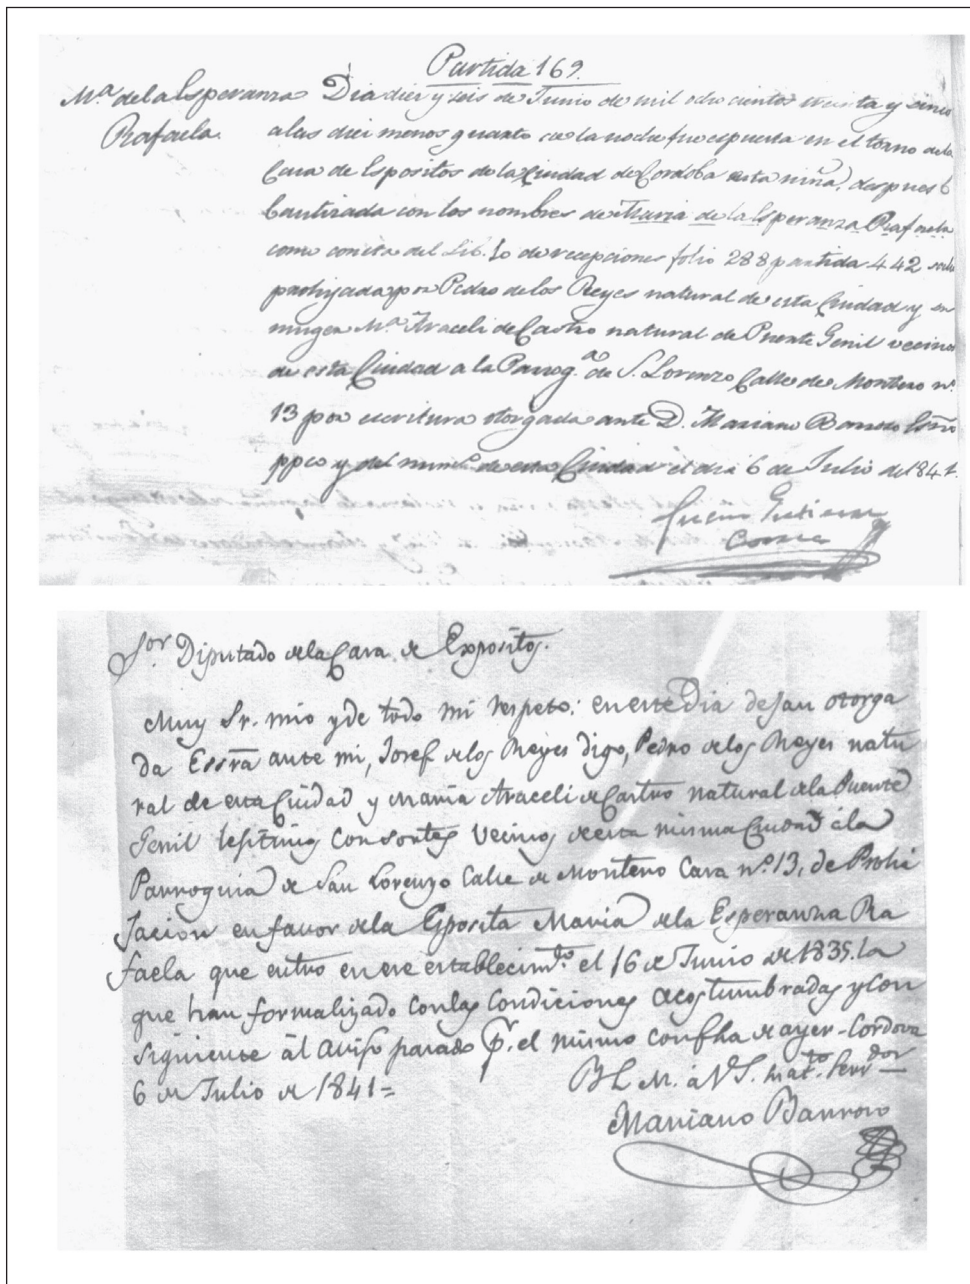 Partida 169.
Mª de la Esperanza
Rafaela.
Dia diez y seis de Junio de mil ocho cientos treinta y cinco
a las diez menos quarto de la noche fue espuesta en el torno de la
Casa de Espositos de la Ciudad de Cordoba esta niña, despues
bautizada con los nombres de Maria de la Esperanza Rafaela
como consta del Lib. 1o de recepciones folio 288 partida 442
prohijada por Pedro de los Reyes natural de esta Ciudad y su
muger Mª Araceli de Castro natural de Puente Genil vecinos
de esta Ciudad a la Parroq.ª de S. Lorenzo Calle de Montero nº.
13 por escritura otorgada ante D. Mariano Barroso
ppco y del num.º de esta Ciudad el dia 6 de Julio de 1841.
Gutierrez
Sor. Diputado de la Casa de Expositos.
Muy Sr. mio y de todo mi respeto: en este Dia dejan otorga
da Essrã ante mi, Josef de los Reyes digo, Pedro de los Reyes natu
ral de esta Ciudad y Maria Araceli de Castro natural de la Puente
Genil lejitimos Consortes Vecinos de esta misma Ciudad á la
Parroquia de San Lorenzo Calle de Montero Casa nº. 13, de Prohi
jacion en favor de la Esposita Maria de la Esperanza Ra
faela que entro en ese establecimto. el 16 de Junio de 1835. la
que han formalizado con las Condiciones acostumbradas y con
siguiente ál aviso pasado pr. el mismo con fha de ayer - Cordova
6 de Julio de 1841 =
B L M. á V S. su at.to Serv.dor
Mariano Barroso